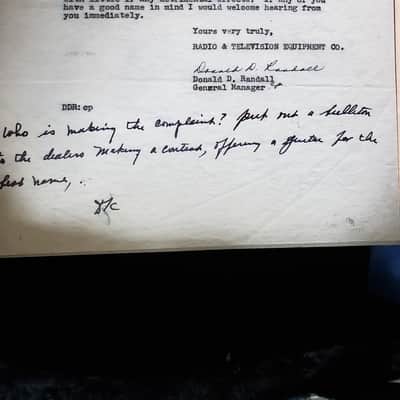 you have a good name in mind I would welcome hearing from
you immediately.
Yours very truly,
RADIO & TELEVISION EQUIPMENT CO.
Donald D. Randall
Donald D. Randall
General Manager
DDR:cp
Who is making the complaint? Put out a bulletin
to the dealers making a contest, offering a guitar for the
best name,